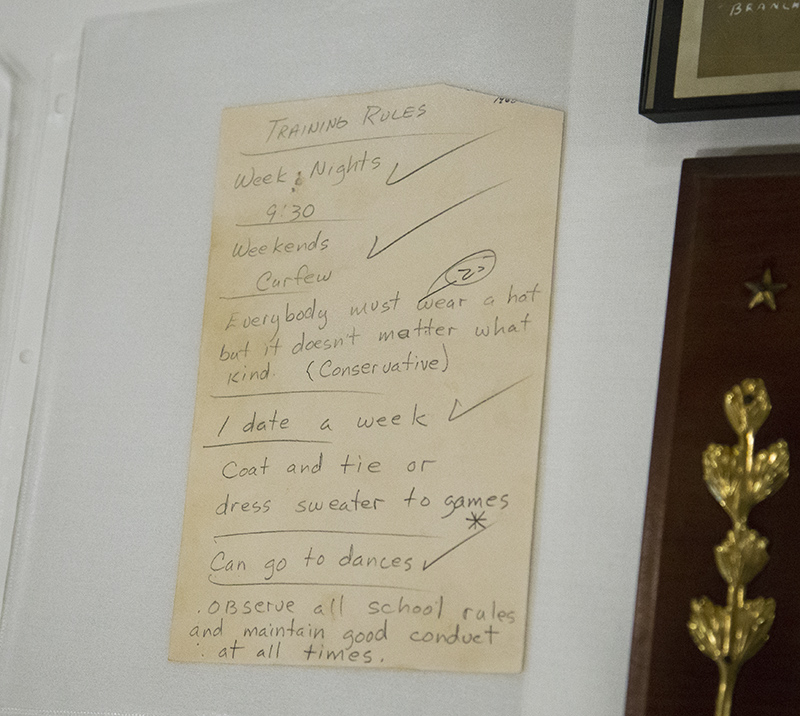 BRANCH
TRAINING RULES
Week Nights
9:30
Weekends
Curfew
Everybody must wear a hat
but it doesn't matter what
kind. (Conservative)
1 date a week
Coat and tie or
dress sweater to games
*
Can go to dances
. OBSERVE all school rules
and maintain good conduct
at all times.